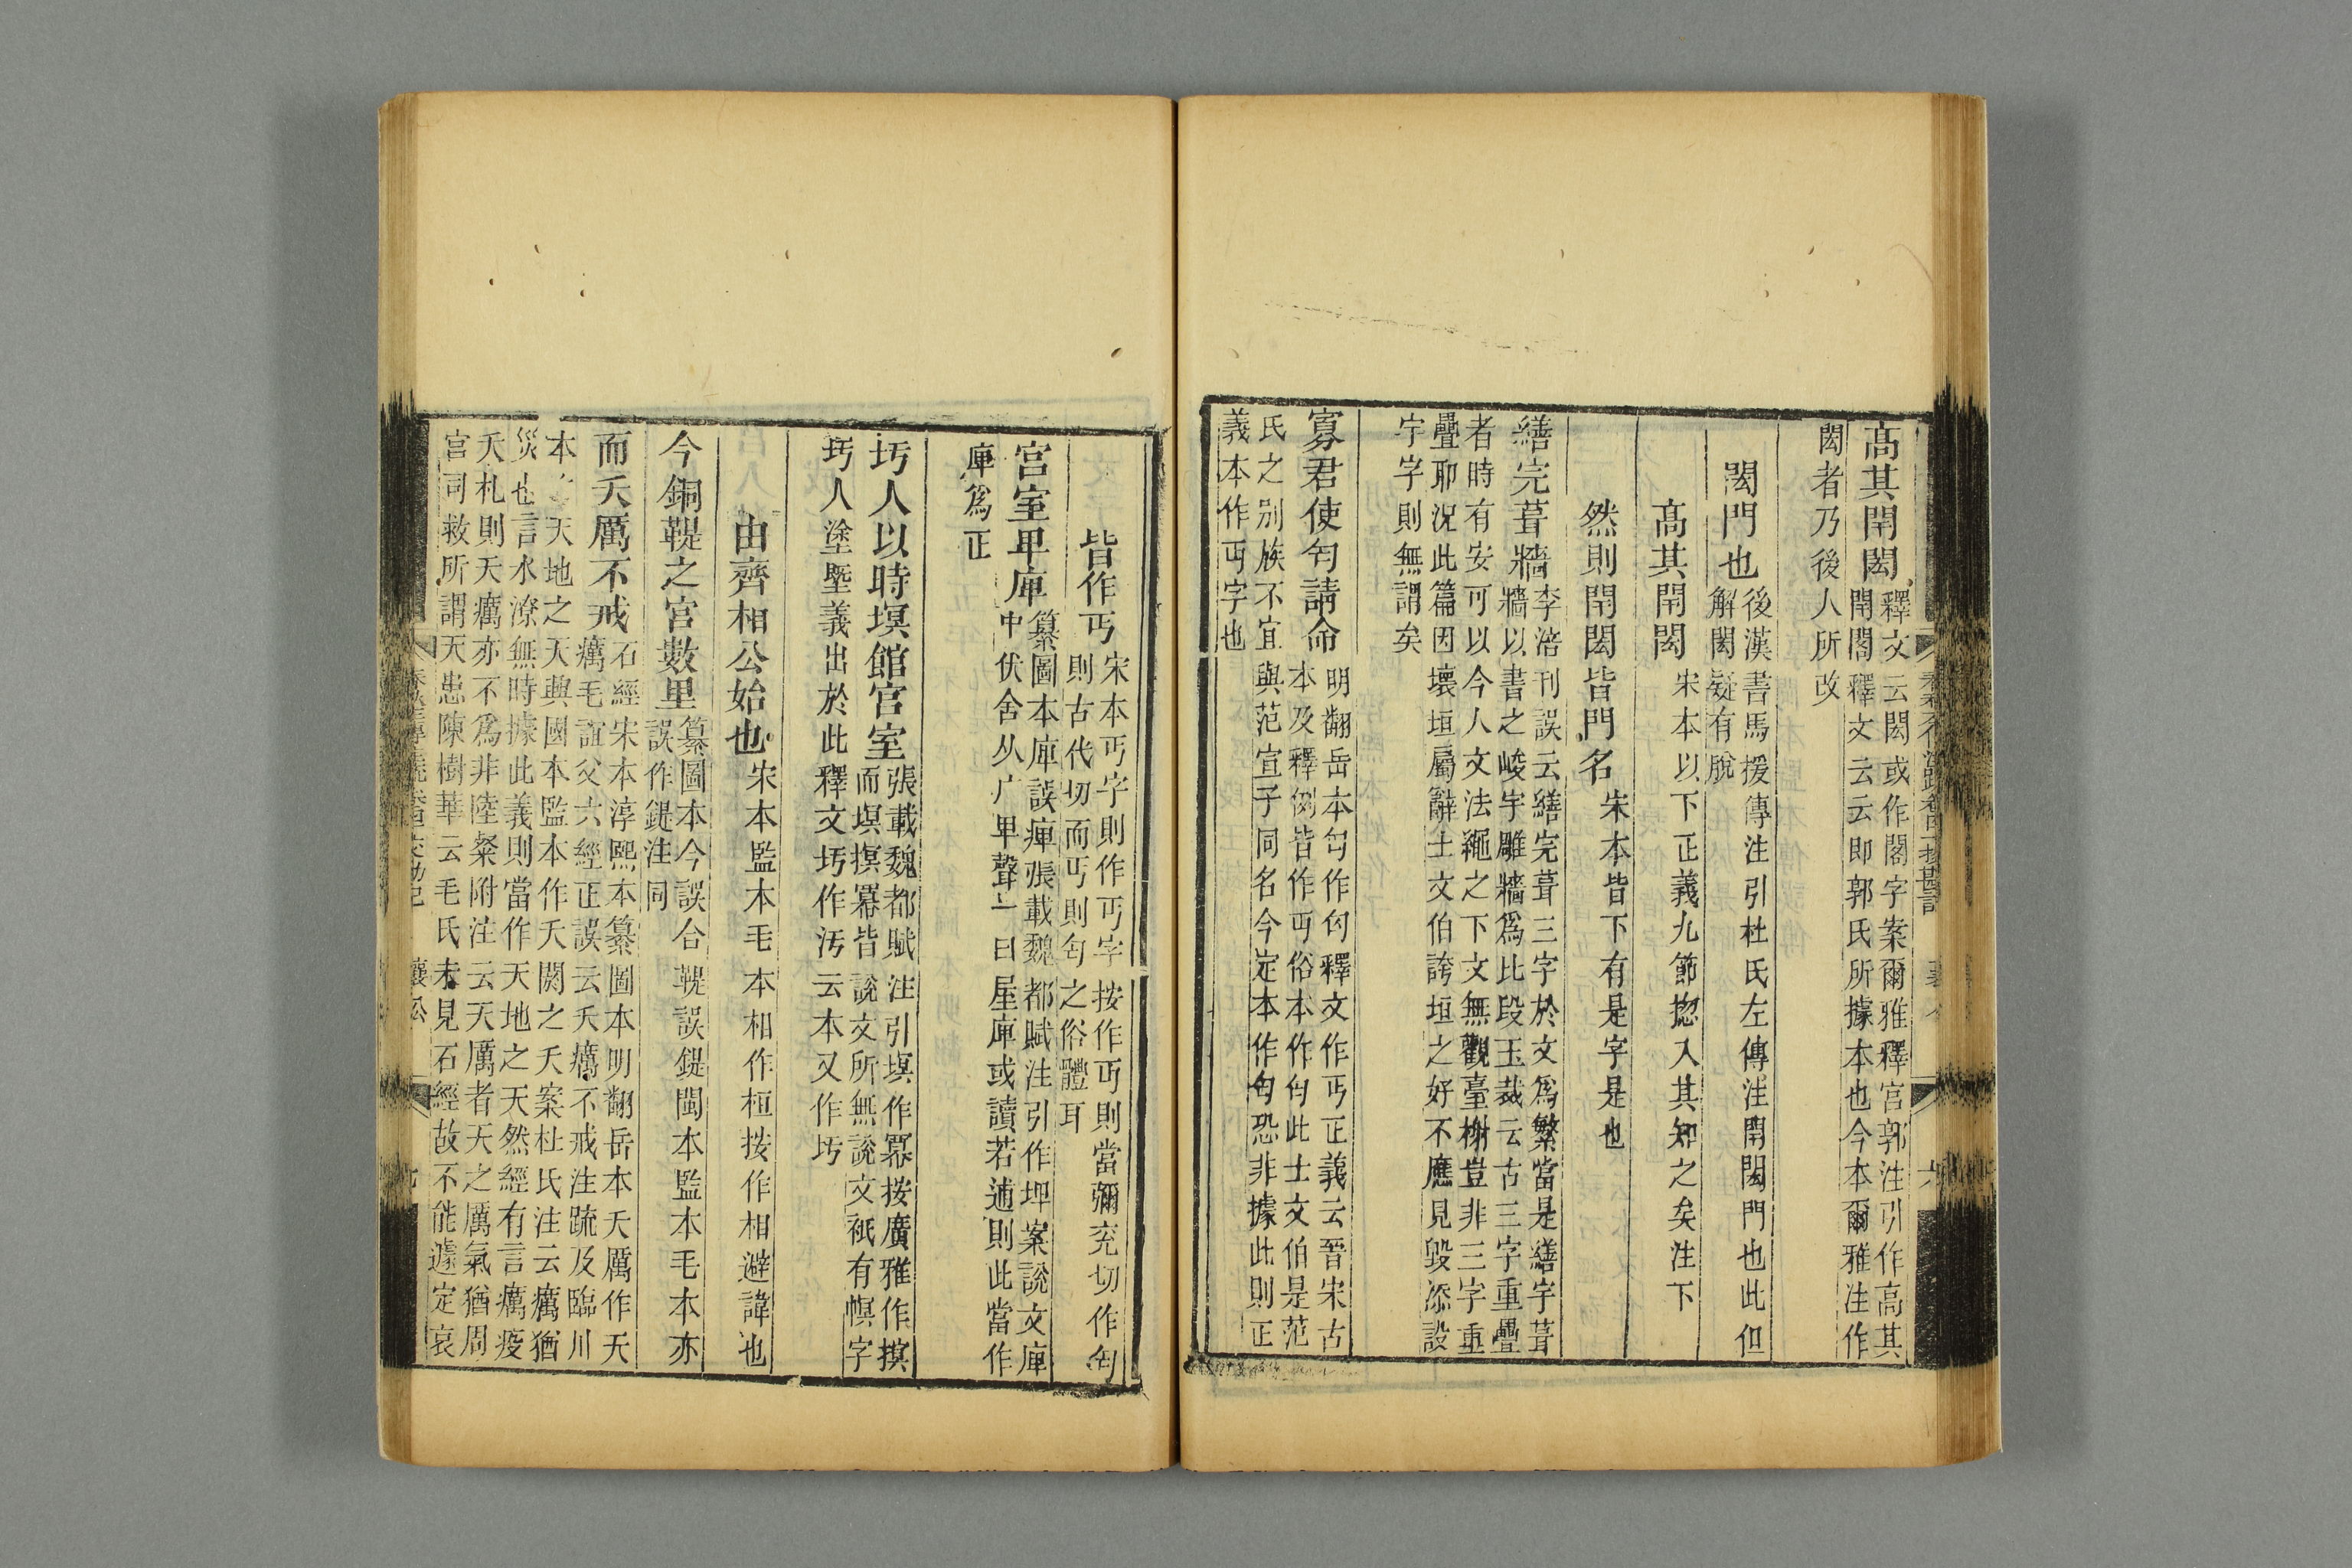 高其閈閎釋文云閎或作閤字案爾雅釋宮郭注引作高其
閈閤釋文云云即郭氏所據本也今本爾雅注作
閎者乃後人所改
閎門也後漢書馬援傳注引杜氏左傳注閈閎門也此但
解閎疑有脫
高其閈閎宋本以下正義九節揔入其知之矣注下
然則閈閎皆門名宋本皆下有是字是也
繕完葺牆李涪刊誤云繕完葺三字於文爲繁當是繕宇葺
牆以書之峻宇雕牆爲比段玉裁云古三字重疊
者時有安可以今人文法繩之下文無觀臺榭豈非三字重
疊耶況此篇因壞垣屬辭士文伯誇垣之好不應見毀添設
宇字則無謂矣
寡君使匄請命明翻岳本匄作匃釋文作丐正義云晉宋古
本及釋例皆作丏俗本作匄此士文伯是范
氏之別族不宜與范宣子同名今定本作匄恐非據此則正
義本作丏字也
皆作丐宋本丐字則作丏字按作丏則當彌兖切作匄
則古代切而丐則匄之俗體耳
宮室卑庳纂圖本庳誤痺張載魏都賦注引作埤案說文庳
中伏舍从广卑聲一曰屋庳或讀若逋則此當作
庳爲正
圬人以時塓館宮室張載魏都賦注引塓作冪按廣雅作摸
而塓摸冪皆說文所無說文祇有幎字
圬人塗墍義出於此釋文圬作汚云本又作圬
由齊相公始也宋本監本毛本相作桓按作相避諱也
今銅鞮之宮數里纂圖本今誤合鞮誤鍉閩本監本毛本亦
誤作鍉注同
而夭厲不戒石經宋本淳熙本纂圖本明翻岳本夭厲作天
癘毛誼父六經正誤云夭癘不戒注疏及臨川
本天地之天興國本監本作夭閼之夭案杜氏注云癘猶
災也言水潦無時據此義則當作天地之天然經有言癘疫
夭札則天癘亦不爲非陸粲附注云天厲者天之厲氣猶周
官司救所謂天患陳樹華云毛氏未見石經故不能遽定哀